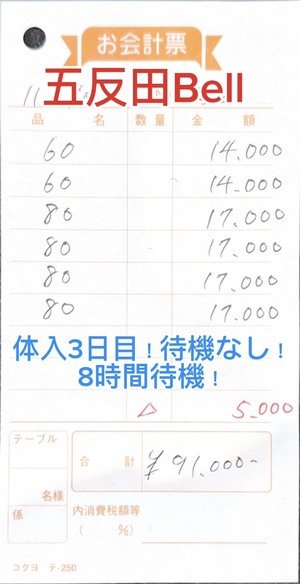 お会計票
11
五反田Bell
品 名 数量 金 額
60 14.000
60 14.000
80 17.000
80 17.000
80 17.000
80 17.000
体入3日目！待機なし！
8時間待機！
△ 5.000
テーブル
合 計 ¥91.000-
名様
係
内消費税額等
( %)
コクヨ テ-250